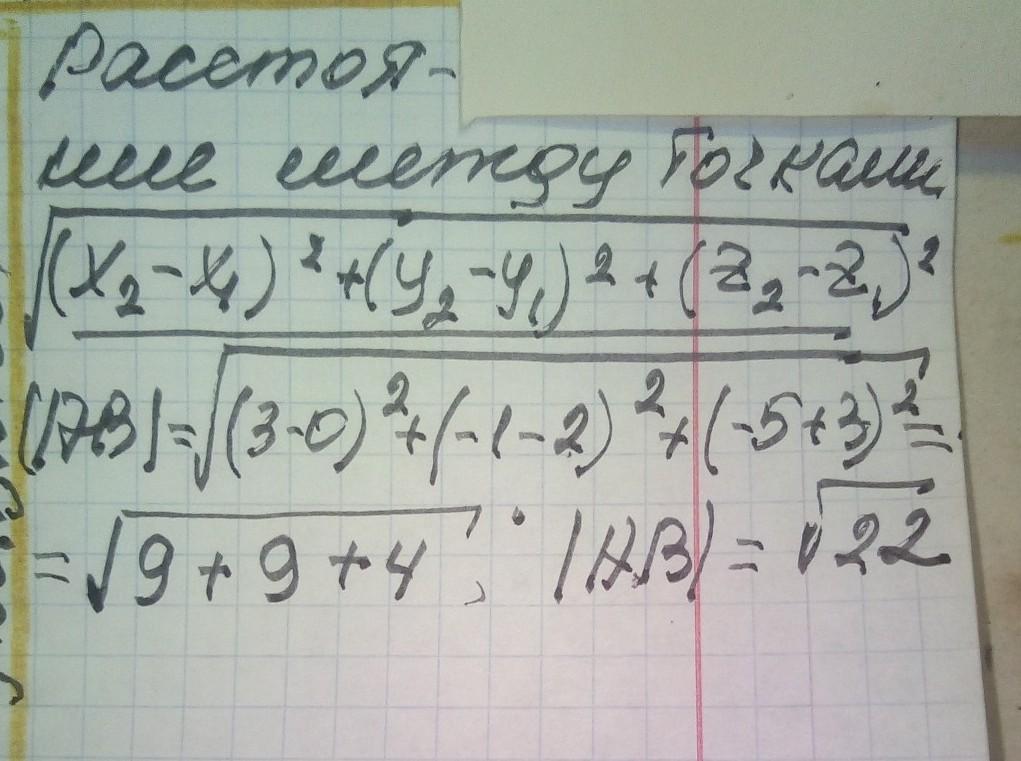 Расстоя-
ние между точками
√(x₂-x₁)²+(y₂-y₁)²+(z₂-z₁)²
|AB|=√(3-0)²+(-1-2)²+(-5+3)²=
=√9+9+4; |AB|=√22